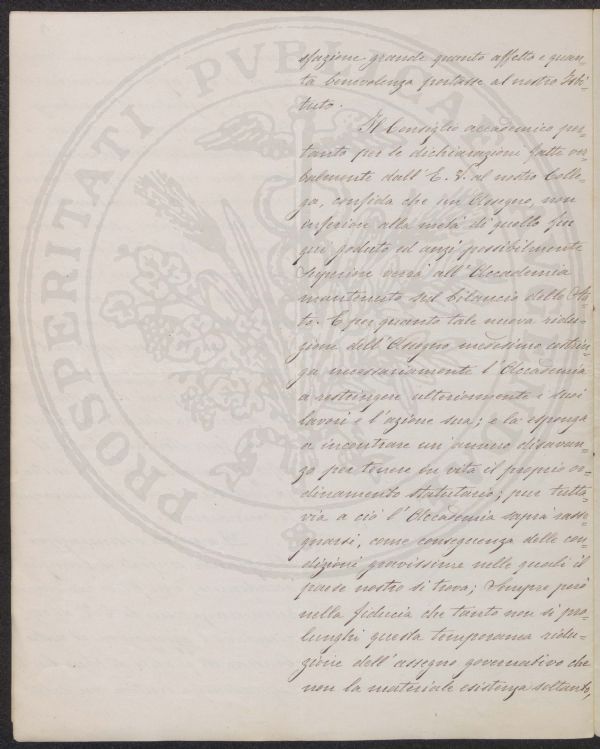 sfazione grande quanto affetto e quan-
ta benevolenza portasse al nostro Isti-
tuto.
Il Consiglio accademico per-
tanto per le dichiarazioni fatte ver-
balmente dall'E. V. al nostro Colle-
ga, confida che un Assegno, non
inferiore alla metà di quello fin
qui goduto ed anzi possibilmente
superiore verrà all'Accademia
mantenuto sul bilancio dello Sta-
to. E per quanto tale nuova ridu-
zione dell'Assegno medesimo costrin-
ga necessariamente l'Accademia
a restringere ulteriormente i suoi
lavori e l'azione sua; e la esponga
a incontrare un annuo disavan-
zo per tenere in vita il proprio or-
dinamento statutario; pur tutta-
via a ciò l'Accademia saprà rasse-
gnarsi, come conseguenza delle con-
dizioni gravissime nelle quali il
paese nostro si trova; Sempre però
nella fiducia che tanto non si pro-
lunghi questa temporanea ridu-
zione dell'assegno governativo che
non la materiale esistenza soltanto,
PROSPERITATI PVBLICAE